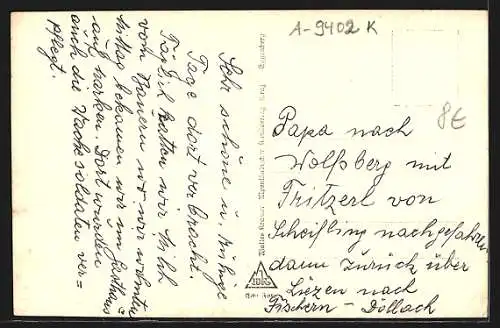 A-9402 K
8€
Sehr schöne u. ruhige
Tage dort verbracht.
Täglich hatten wir Milch
vom Bauern wo wir wohnten
Mittag bekamen wir im Gasthaus
auf Marken. Dort wurden
auch die Wachesoldaten ver=
pflegt.
Papa nach
Wolfsberg mit
Fritzerl von
Scheifling nachgefahren
dann zurück über
Liezen nach
Fischern - Döllach